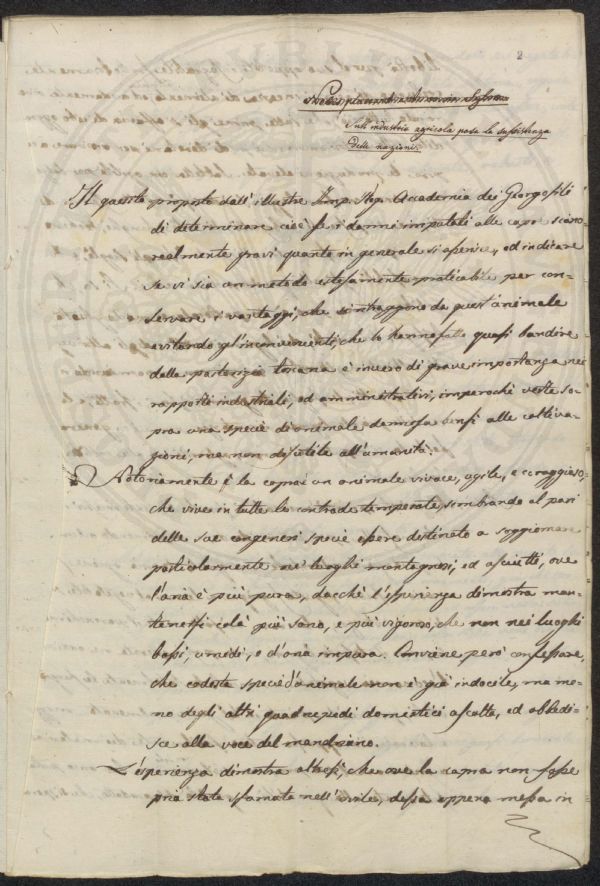 2
Sull'industria agricola posa la sussistenza
delle nazioni.
Il quesito proposto dall'illustre Imp. Reg. Accademia dei Georgofili
di determinare cioè se i danni imputati alle capre siano
realmente gravi quanto in generale si asserisce, ed indicare
se vi sia un metodo estesamente praticabile per con-
servare i vantaggi, che si ritraggono da quest'animale
evitando gl'inconvenienti, che lo hanno fatto quasi bandire
dalla pastorizia toscana è invero di grave importanza nei
rapporti industriali, ed amministrativi, imperochè verte so-
pra una specie di animale dannosa bensì alle coltiva-
zioni, ma non disutile all'umanità.
Notoriamente è la capra un animale vivace, agile, e coraggioso,
che vive in tutte le contrade temperate, sembrando al pari
delle sue congeneri specie essere destinata a soggiornare
particolarmente ne' luoghi montagnosi, ed asciutti, ove
l'aria è più pura, dacchè l'esperienza dimostra man-
tenersi colà più sano, e più vigoroso, che non nei luoghi
bassi, umidi, e d'aria impura. Conviene però confessare,
che codesta specie d'animale non è già indocile, ma me-
no degli altri quadrupedi domestici ascolta, ed obbedi-
sce alla voce del mandriano.
L'esperienza dimostra altresì, che ove la capra non fosse
pria stata sfamata nell'ovile, dessa appena messa in